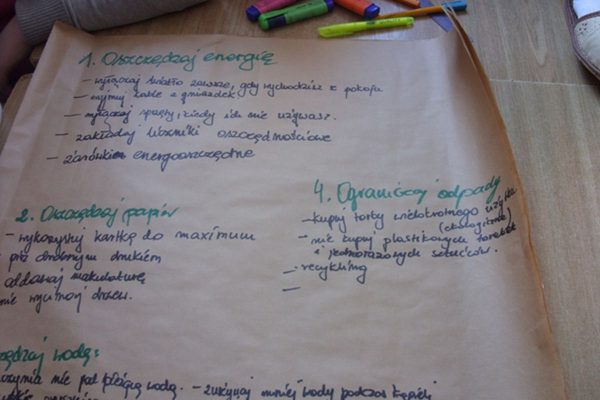 1. Oszczędzaj energię
- wyłączaj światło zawsze, gdy wychodzisz z pokoju
- wyjmij kable z gniazdek
- wyłączaj sprzęty, kiedy ich nie używasz.
- zakładaj liczniki oszczędnościowe
- żarówki energooszczędne
2. Oszczędzaj papier
- wykorzystuj kartkę do maximum
pisz drobnym drukiem
oddawaj makulaturę
nie wycinaj drzew.
4. Ograniczaj odpady
- kupuj torby wielokrotnego użytku
(ekologiczne)
- nie kupuj plastikowych torebek
i jednorazowych sztućców.
- recykling
-
wodę:
pod bieżącą wodą. - zużywaj mniej wody podczas kąpieli